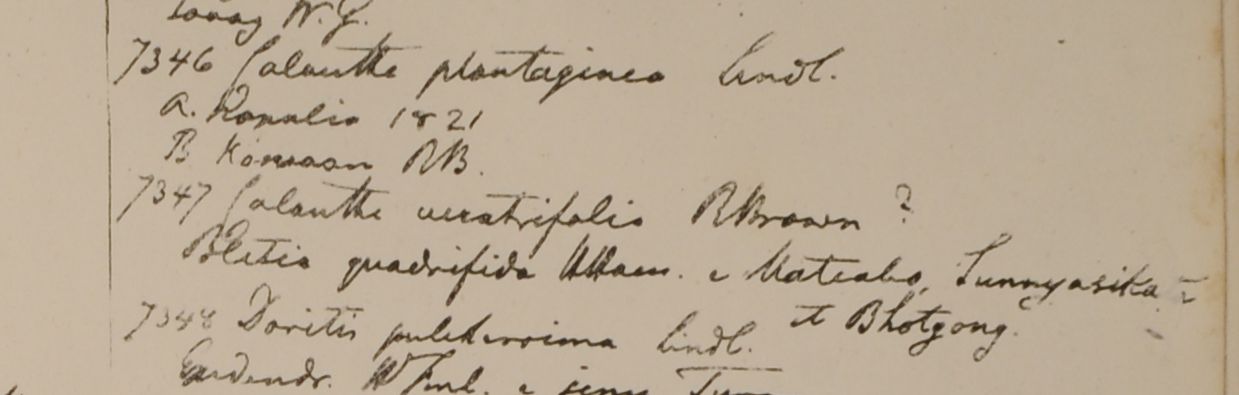 Tavoy W.G.
7346 Calanthe plantaginea Lindl.
A. Kamalia 1821
B Kamaon RB.
7347 Calanthe veratrifolia RBrown ?
Bletia quadrifida HHam. e Mateabo, Sunnyasika
et Bhotgong.
7348 Doritis pulcherrima Lindl.
Epidendr. Finl. e